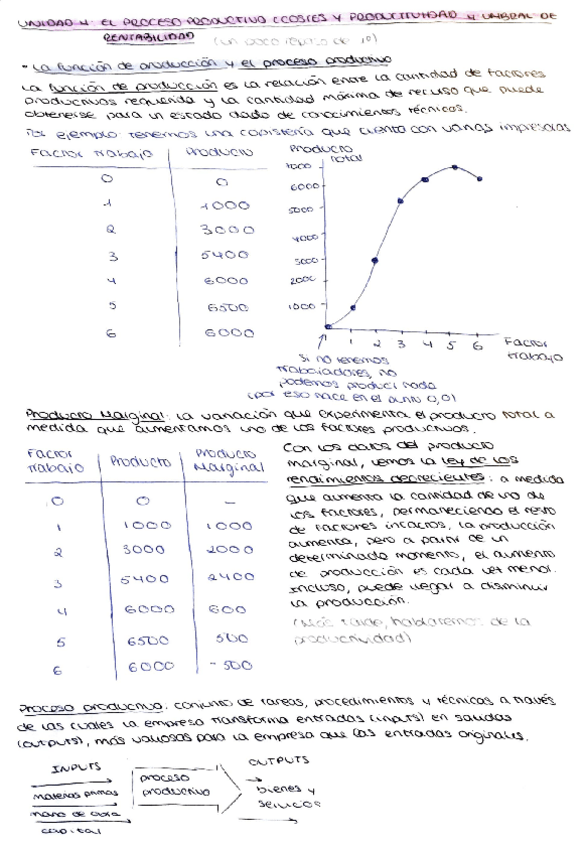 UNIDAD 4: EL PROCESO PRODUCTIVO (COSTES Y PRODUCTIVIDAD) Y UMBRAL DE
RENTABILIDAD (un poco repaso de 1º)
- La función de producción y el proceso productivo
La función de producción es la relación entre la cantidad de factores
productivos requerida y la cantidad máxima de recurso que puede
obtenerse para un estado dado de conocimientos técnicos.
Por ejemplo: tenemos una copistería que cuenta con varias impresoras
Factor trabajo Producto
0 0
1 1000
2 3000
3 5400
4 6000
5 6500
6 6000
Producto
total
7000
6000
5000
4000
3000
2000
1000
1 2 3 4 5 6 Factor
trabajo
Si no tenemos
trabajadores, no
podemos producir nada
(por eso nace en el punto 0,0)
Producto Marginal: la variación que experimenta el producto total a
medida que aumentamos uno de los factores productivos.
Factor
trabajo Producto Producto
Marginal
0 0 -
1 1000 1000
2 3000 2000
3 5400 2400
4 6000 600
5 6500 500
6 6000 -500
Con los datos del producto
marginal, vemos la ley de los
rendimientos decrecientes: a medida
que aumenta la cantidad de uno de
los factores, permaneciendo el resto
de factores intactos, la producción
aumenta, pero a partir de un
determinado momento, el aumento
de producción es cada vez menor.
Incluso, puede llegar a disminuir
la producción.
(Más tarde, hablaremos de la
productividad)
Proceso productivo: conjunto de tareas, procedimientos y técnicas a través
de las cuales la empresa transforma entradas (inputs) en salidas
(outputs), más valiosas para la empresa que las entradas originales.
INPUTS
materias primas
mano de obra
capital
proceso
productivo
OUTPUTS
bienes y
servicios